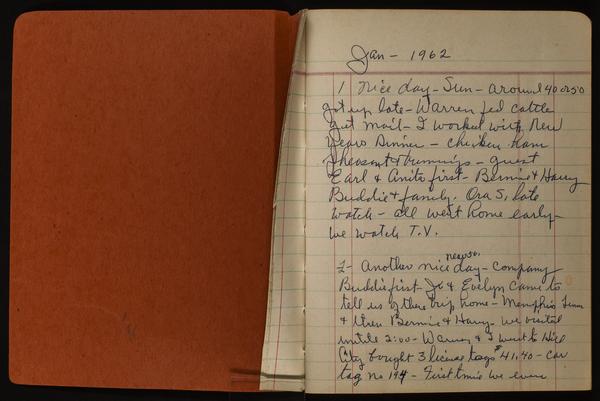 Jan - 1962
1 nice day - Sun - around 40 or 50
got up late - Warren fed cattle
get mail - I worked with New
Years Dinner - chicken ham
pheasant & trimmings - guest
Earl & Anita first - Bernie & Harry
Buddie & family. Ora S, late
watch - all went home early -
we watch T.V.
2 - Another nice day - company
Buddie first - & Evelyn came to
tell us of there trip home - Memphis Tenn
& then Bernie & Harry - we visited
untill 2:00 - Warren & I went to Hill
City bought 3 license tags $41.40 - car
tag no 194 - First time we ever